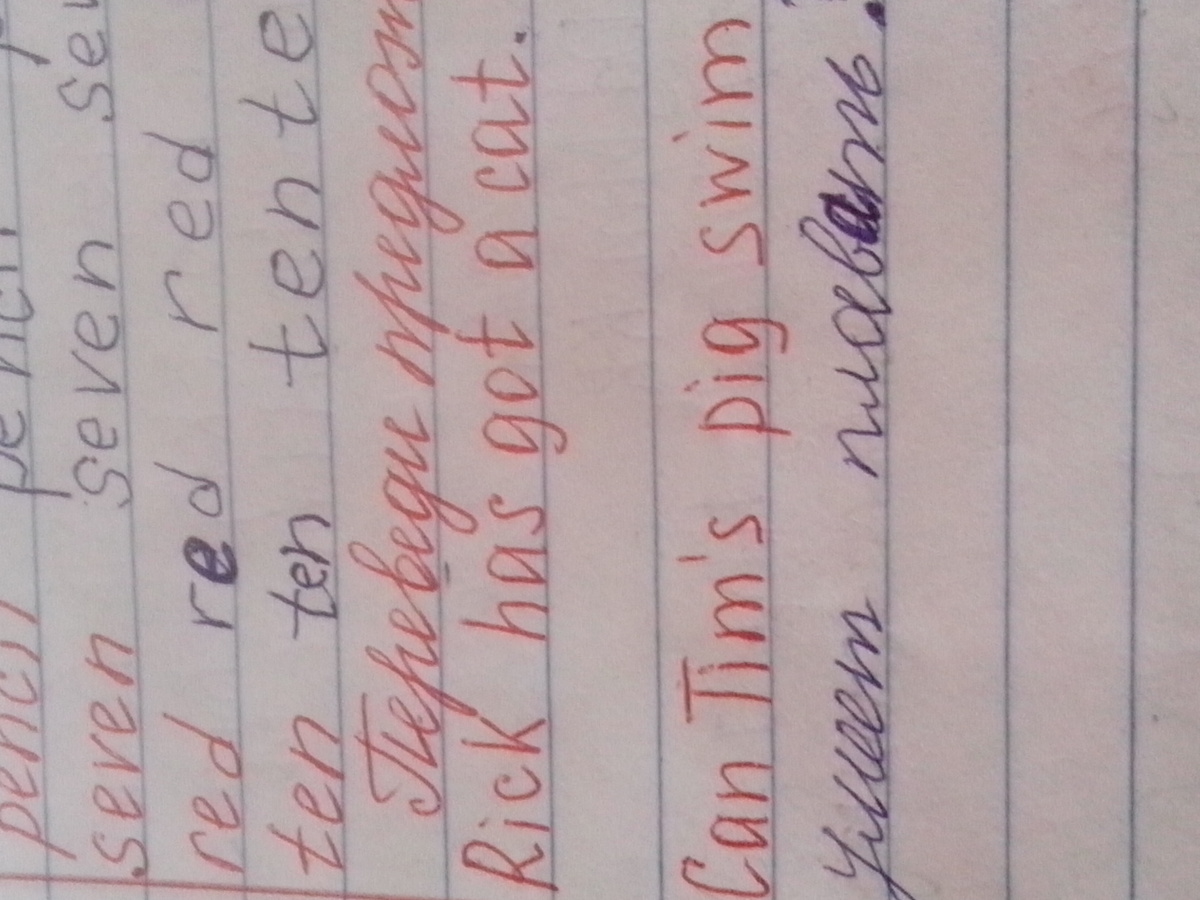 pencil pencil
seven seven
red red red red
ten ten ten
Переведи
Rick has got a cat.
Can Tim's pig swim
Умеет плавать.